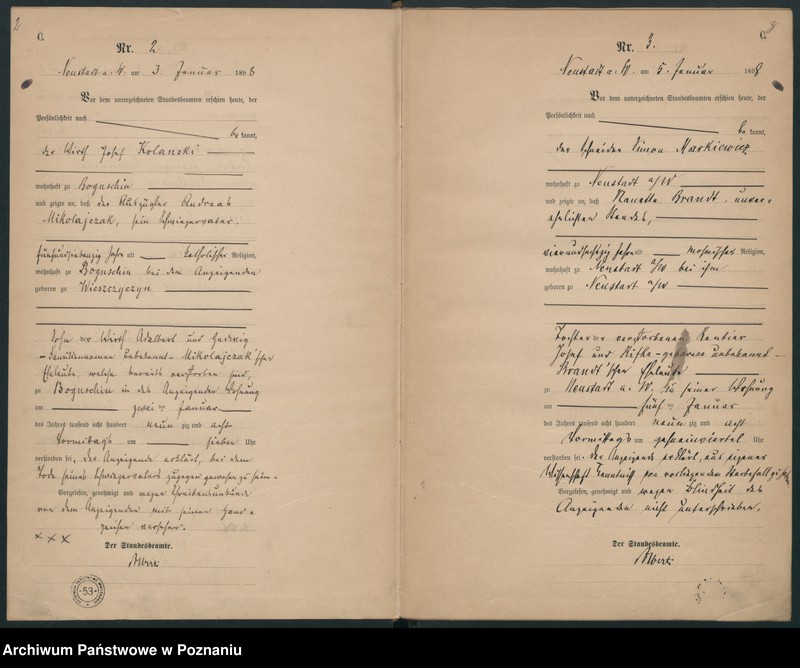 2
C.
Nr. 2
Neustadt a. W. am 3. Januar 1898
Vor dem unterzeichneten Standesbeamten erschien heute, der
Persönlichkeit nach
be kannt,
der Wirth Josef Kolanski
wohnhaft zu Boguschin
und zeigte an, daß der Auszügler Andreas
Mikolajczak, sein Schwiegervater,
fünfundsiebenzig Jahre alt katholischer Religion,
wohnhaft zu Boguschin bei dem Anzeigenden
geboren zu Wieszczyczyn
Sohn der Wirth Adalbert und Hedwig
- Familienname unbekannt - Mikolajczak'schen
Eheleute, welche bereits verstorben sind,
zu Boguschin in des Anzeigenden Wohnung
am zwei ten Januar
des Jahres tausend acht hundert neun zig und acht
Vormittags um sieben Uhr
verstorben sei, der Anzeigende erklärt, bei dem
Tode seines Schwiegervaters zugegen gewesen zu sein.
Vorgelesen, genehmigt und wegen Schreibensunkunde
von dem Anzeigenden mit seinem Hand-
zeichen versehen.
x x x
Der Standesbeamte.
Albert
53
3
C.
Nr. 3.
Neustadt a. W. am 5. Januar 1898
Vor dem unterzeichneten Standesbeamten erschien heute, der
Persönlichkeit nach
be kannt,
der Schneider Simon Markiewicz
wohnhaft zu Neustadt a/W
und zeigte an, daß Nanette Brandt, unver-
ehelichten Standes,
vierundsechzig Jahre alt mosaischer Religion,
wohnhaft zu Neustadt a/W bei ihm
geboren zu Neustadt a/W
Tochter der verstorbenen Rentier
Josef und Rifke - geborene unbekannt -
Brandt'schen Eheleute
zu Neustadt a. W. in seiner Wohnung
am fünf ten Januar
des Jahres tausend acht hundert neun zig und acht
Vormittags um Uhr
verstorben sei. Der Anzeigende erklärt, aus eigener
Wissenschaft Kenntniß von vorliegendem Sterbefall zu
Vorgelesen, genehmigt und wegen Blindheit des
Anzeigenden nicht unterschrieben.
Der Standesbeamte.
Albert
Archiwum Państwowe w Poznaniu